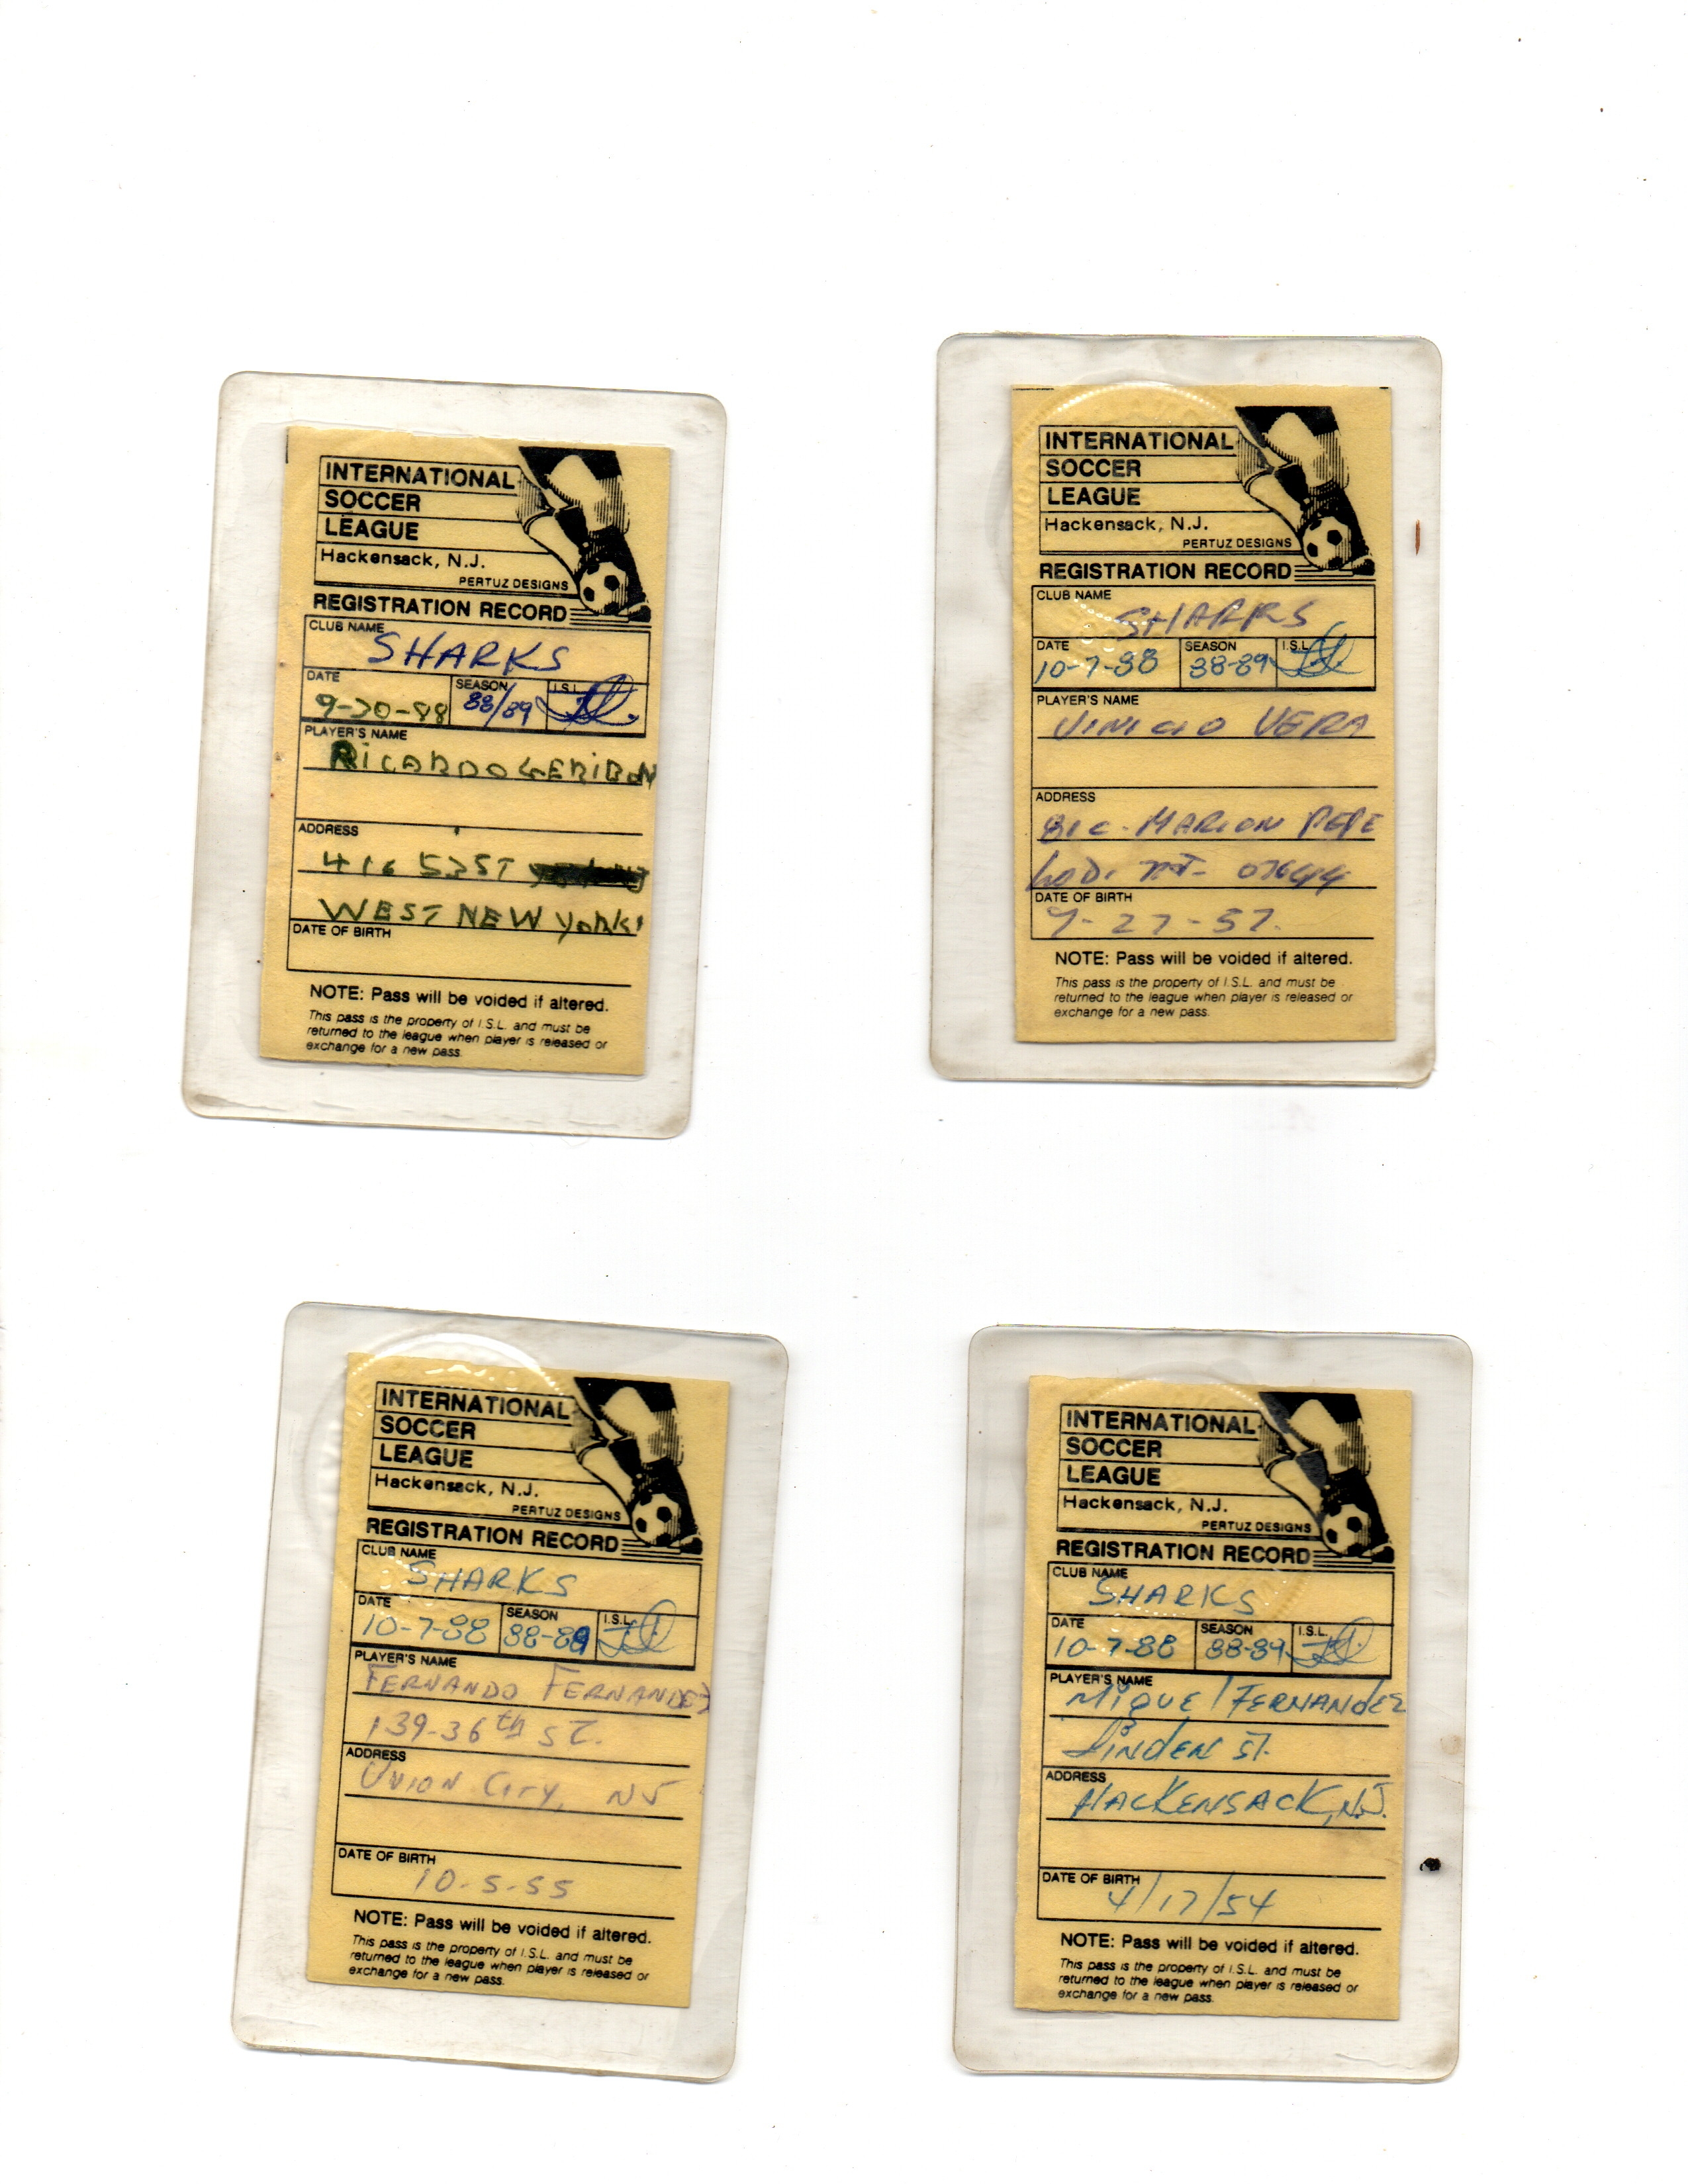 INTERNATIONAL
SOCCER
LEAGUE
Hackensack, N.J.
PERTUZ DESIGNS
REGISTRATION RECORD
CLUB NAME
SHARKS
DATE SEASON I.S.L.
9-20-88 88/89
PLAYER'S NAME
RICARDO
ADDRESS
416 53 ST
WEST NEW YORK
DATE OF BIRTH
NOTE: Pass will be voided if altered.
This pass is the property of I.S.L. and must be
returned to the league when player is released or
exchange for a new pass.
INTERNATIONAL
SOCCER
LEAGUE
Hackensack, N.J.
PERTUZ DESIGNS
REGISTRATION RECORD
CLUB NAME
SHARKS
DATE SEASON I.S.L.
10-7-88 88-89
PLAYER'S NAME
VINICIO VERA
ADDRESS
MARION PEPE
LODI NJ- 07644
DATE OF BIRTH
27-57.
NOTE: Pass will be voided if altered.
This pass is the property of I.S.L. and must be
returned to the league when player is released or
exchange for a new pass.
INTERNATIONAL
SOCCER
LEAGUE
Hackensack, N.J.
PERTUZ DESIGNS
REGISTRATION RECORD
CLUB NAME
SHARKS
DATE SEASON I.S.L.
10-7-88 88-89
PLAYER'S NAME
FERNANDO FERNANDEZ
139-36th ST.
ADDRESS
UNION CITY, NJ
DATE OF BIRTH
10-5-55
NOTE: Pass will be voided if altered.
This pass is the property of I.S.L. and must be
returned to the league when player is released or
exchange for a new pass.
INTERNATIONAL
SOCCER
LEAGUE
Hackensack, N.J.
PERTUZ DESIGNS
REGISTRATION RECORD
CLUB NAME
SHARKS
DATE SEASON I.S.L.
10-7-88 88-89
PLAYER'S NAME
MIQUEl FERNANDEZ
LINDEN ST.
ADDRESS
HACKENSACK, N.J.
DATE OF BIRTH
4/17/54
NOTE: Pass will be voided if altered.
This pass is the property of I.S.L. and must be
returned to the league when player is released or
exchange for a new pass.